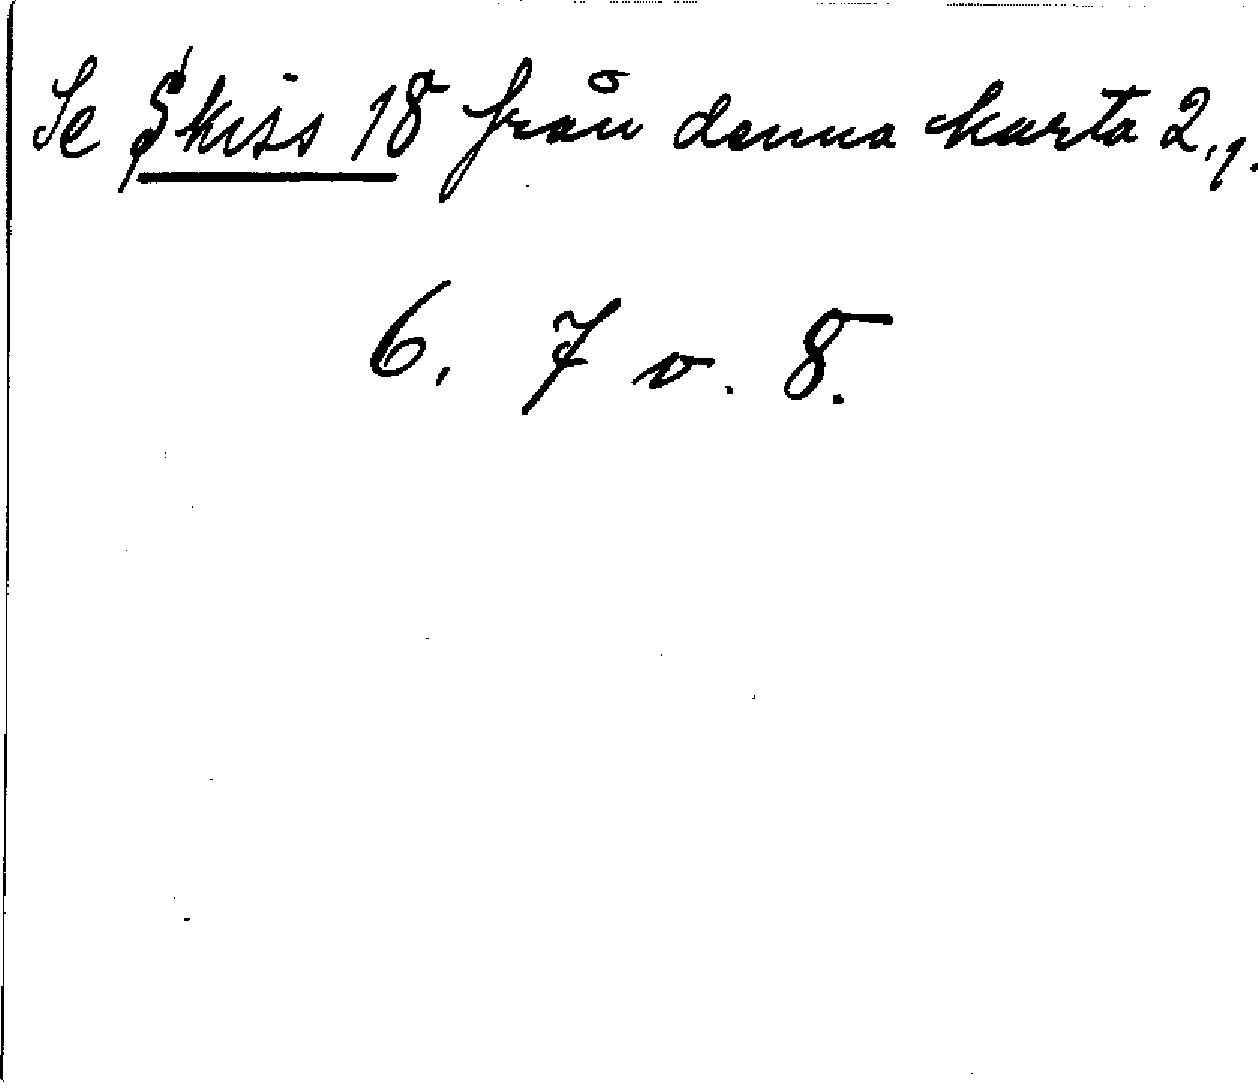 Se Skiss 18 från denna karta 2.1.
6, 7 o. 8.